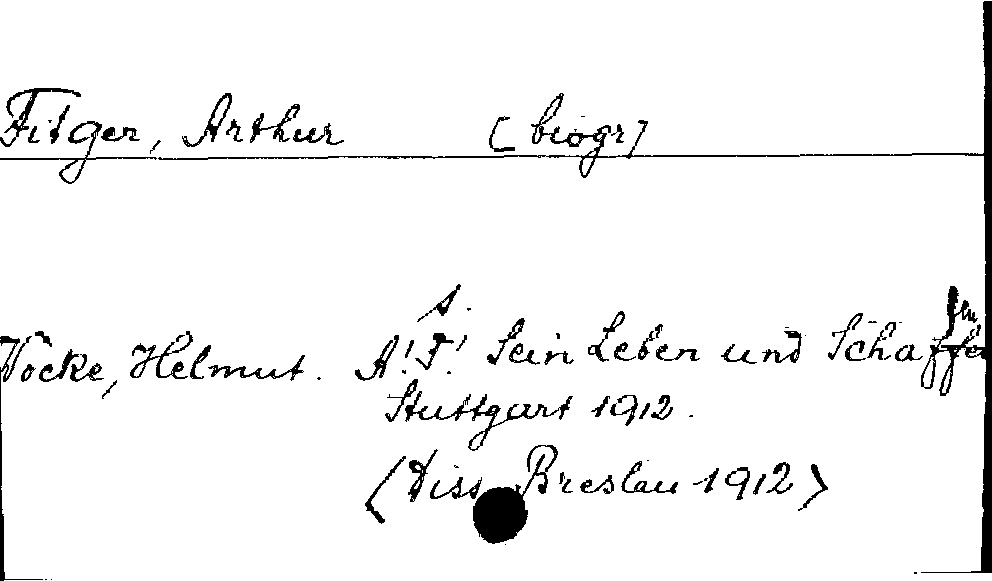 Fitger, Arthur [biogr]
s.
Wocke, Helmut. A! F.! Sein Leben und Schaffen
Stuttgart 1912.
(Diss. Breslau 1912)